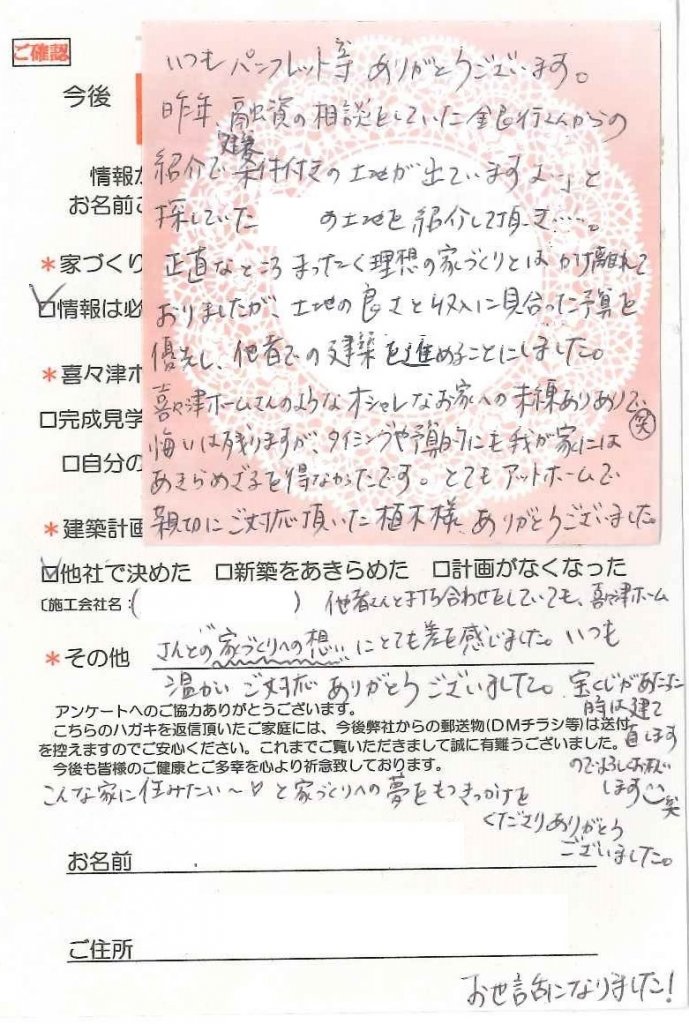 ご確認
今後
いつもパンフレット等ありがとうございます。
昨年、融資の相談をしていた銀行さんからの
紹介で建築条件付の土地が出ていますよ…」と
情報が
お名前ご
探していた の土地を紹介して頂き……。
*家づくり
正直なところ まったく理想の家づくりとは かけ離れて
☑情報は必
おりましたが、土地の良さと収入に見合った予算を
優先し、他者での建築を進めることにしました。
*喜々津ホ
喜々津ホームさんのようなオシャレなお家への未練ありありで㊗
□完成見学
悔いは残りますが、タイミングや予算的にも我が家には
□自分の
あきらめざるを得なかったです。とてもアットホームで
*建築計画
親切にご対応頂いた植木様 ありがとうございました。
☑他社で決めた □新築をあきらめた □計画がなくなった
〔施工会社名:( ) 他者さんと打ち合わせをしていても、喜々津ホーム
*その他 さんとの家づくりへの想いにとても差を感じました。いつも
温かいご対応ありがとうございました。宝くじがあたった
時は建て
直します
のでよろしくお願い
します 笑
アンケートへのご協力ありがとうございます。
こちらのハガキを返信頂いたご家庭には、今後弊社からの郵送物(DMチラシ等)は送付
を控えますのでご安心ください。これまでご覧いただきまして誠に有難うございました。
今後も皆様のご健康とご多幸を心より祈念致しております。
こんな家に住みたい〜♡と家づくりへの夢をもつきっかけを
くださりありがとう
ございました。
お名前
ご住所
お世話になりました!